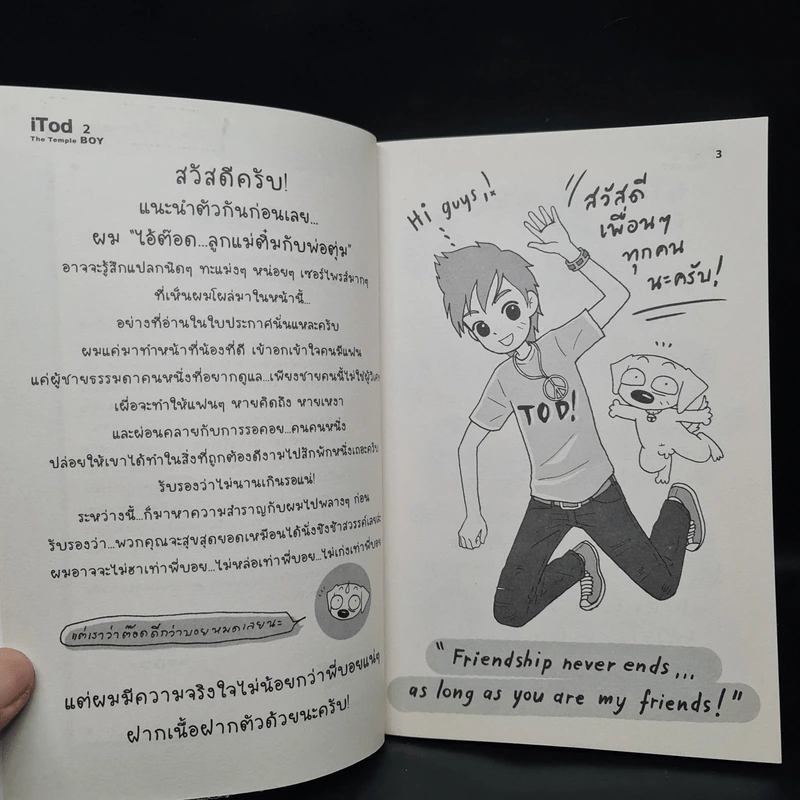 iTod 2
The Temple BOY
สวัสดีครับ!
แนะนำตัวกันก่อนเลย...
ผม "ไอ้ต๊อด...ลูกแม่ติ๋มกับพ่อตุ่ม"
อาจจะรู้สึกแปลกนิดๆ ทะแม่งๆ หน่อยๆ เซอร์ไพรส์มากๆ
ที่เห็นผมโผล่มาในหน้านี้...
อย่างที่อ่านในใบประกาศนั่นแหละครับ
ผมแค่มาทำหน้าที่น้องที่ดี เข้าอกเข้าใจคนมีแฟน
แค่ผู้ชายธรรมดาคนหนึ่งที่อยากดูแล...เพียงชายคนนี้ไม่ใช่ผู้วิเศษ
เผื่อจะทำให้แฟนๆ หายคิดถึง หายเหงา
และผ่อนคลายกับการรอคอย...คนคนหนึ่ง
ปล่อยให้เขาได้ทำในสิ่งที่ถูกต้องดีงามไปสักพักหนึ่งเถอะครับ
รับรองว่าไม่นานเกินรอแน่!
ระหว่างนี้...ก็มาหาความสำราญกับผมไปพลางๆ ก่อน
รับรองว่า...พวกคุณจะสุขสุดยอดเหมือนได้นั่งชิงช้าสวรรค์เลยล่ะ
ผมอาจจะไม่ฮาเท่าพี่บอย...ไม่หล่อเท่าพี่บอย...ไม่เก่งเท่าพี่บอย
แต่เราว่าต๊อดดีกว่าบอยหมดเลยนะ
แต่ผมมีความจริงใจไม่น้อยกว่าพี่บอยแน่ๆ
ฝากเนื้อฝากตัวด้วยนะครับ!
3
Hi guys!
สวัสดี
เพื่อนๆ
ทุกคน
นะครับ!
TOD!
"Friendship never ends...
as long as you are my friends!"